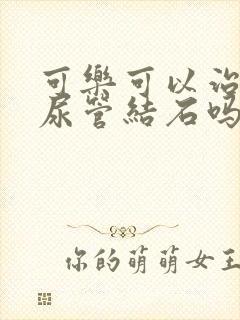 可樂可以治
尿管結石吗
你的萌萌女王